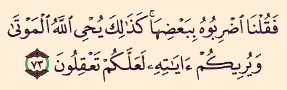 فَقُلْنَا ٱضْرِبُوهُ بِبَعْضِهَا ۚ كَذَٰلِكَ يُحْىِ ٱللَّهُ ٱلْمَوْتَىٰ
وَيُرِيكُمْ ءَايَـٰتِهِۦ لَعَلَّكُمْ تَعْقِلُونَ ٧٣